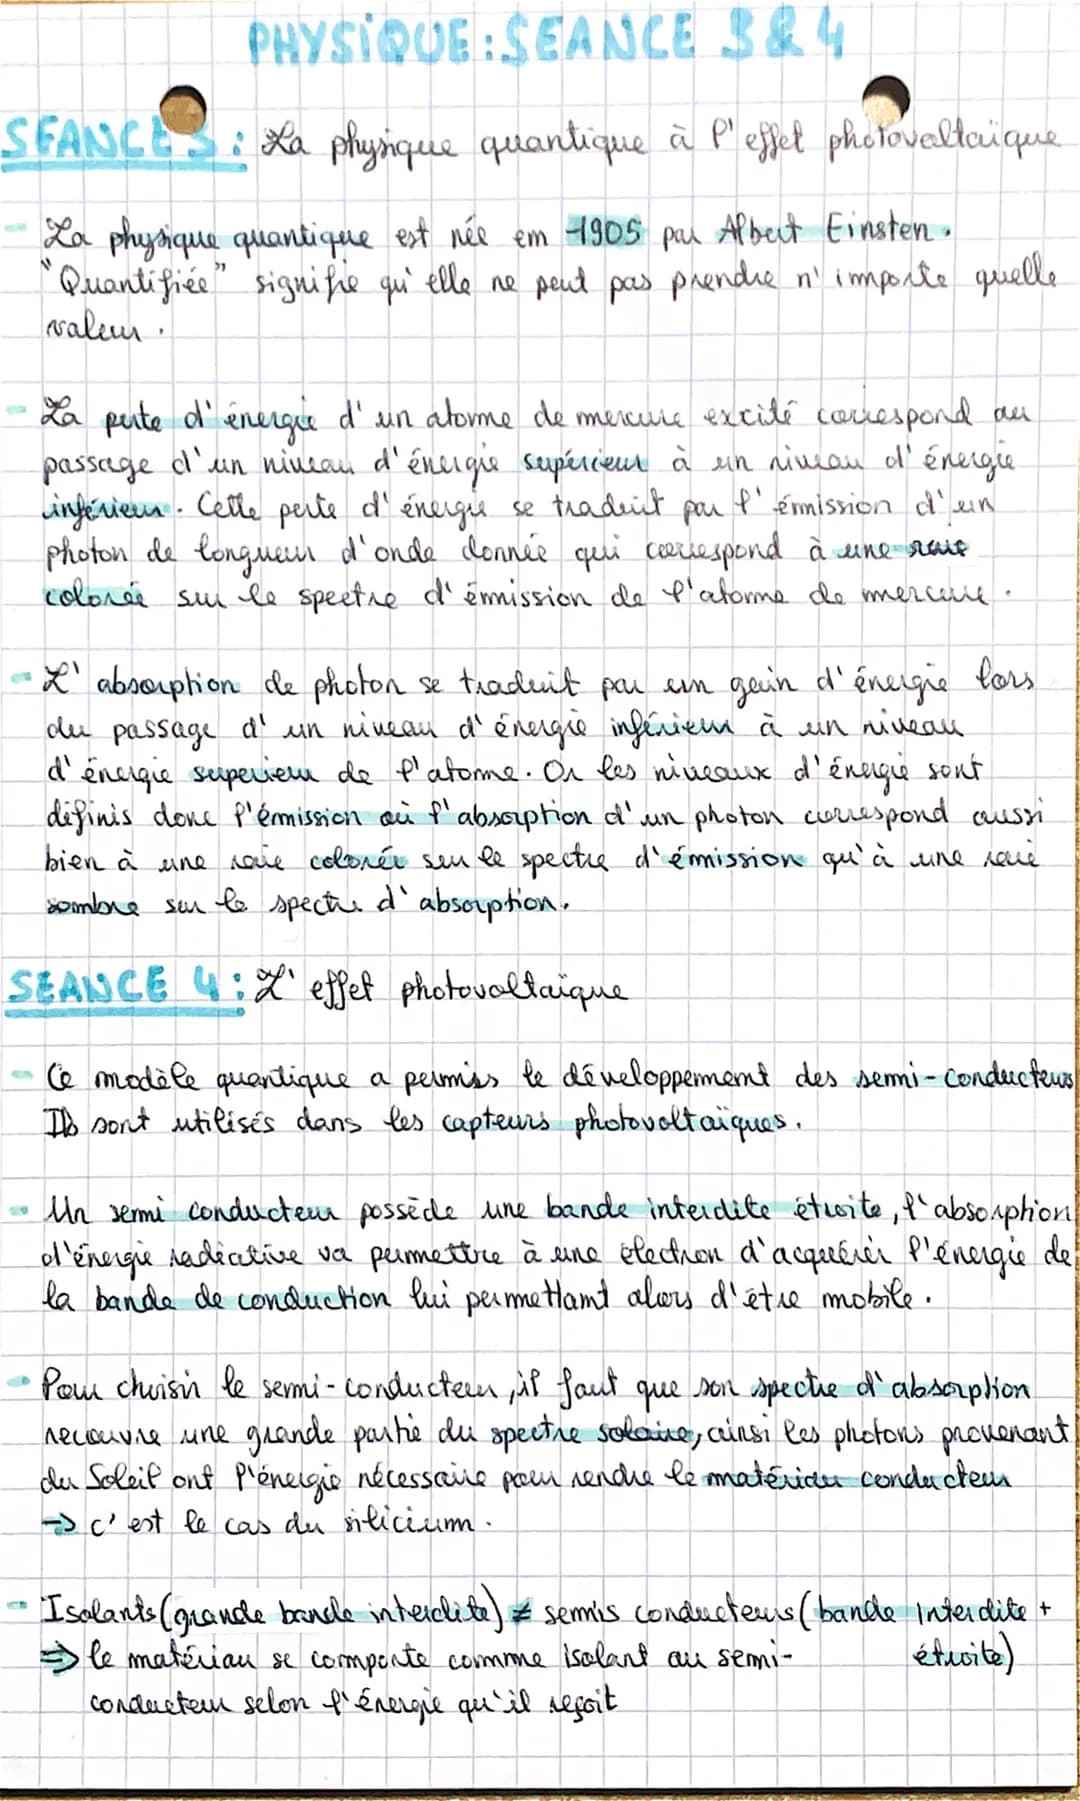 PHYSIQUE : SEANCE 3 & 4
SEANCE 3 : La physique quantique à l'effet photovoltaïque
- La physique quantique est née em 1905 par Albert Einsten.
"Quantifiée" signifie qu'elle ne peut pas prendre n'importe quelle
valeur.
- La perte d'énergie d'un atome de mercure excité correspond au
passage d'un niveau d'énergie supérieur à un niveau d'énergie
inférieur. Cette perte d'énergie se traduit par l'émission d'un
photon de longueur d'onde donnée qui correspond à une raie
colorée sur le spectre d'émission de l'atome de mercure.
- L'absorption de photon se traduit par um gain d'énergie lors
du passage d'un niveau d'énergie inférieur à un niveau
d'énergie superieur de l'atome. Or les niveaux d'énergie sont
définis donc l'émission où l'absorption d'un photon correspond aussi
bien à une raie colorée sur le spectre d'émission qu'à une raie
sombre sur le spectre d'absorption.
SEANCE 4 : L'effet photovoltaïque
- Ce modèle quantique a permis le développement des semi-conducteurs
Ils sont utilisés dans les capteurs photovoltaïques.
- Un semi conducteur possède une bande interdite étroite, l'absorption
d'énergie radiative va permettre à une électron d'acquérir l'énergie de
la bande de conduction lui permettant alors d'être mobile.
- Pour choisir le semi-conducteur, il faut que son spectre d'absorption
recouvre une grande partie du spectre solaire, ainsi les photons provenant
du Soleil ont l'énergie nécessaire pour rendre le matériau conducteur
→ c'est le cas du silicium.
- Isolants (grande bande interdite) ≠ semis conducteurs (bande interdite +
⇒ le matériau se comporte comme isolant au semi- étroite)
conducteur selon l'énergie qu'il reçoit